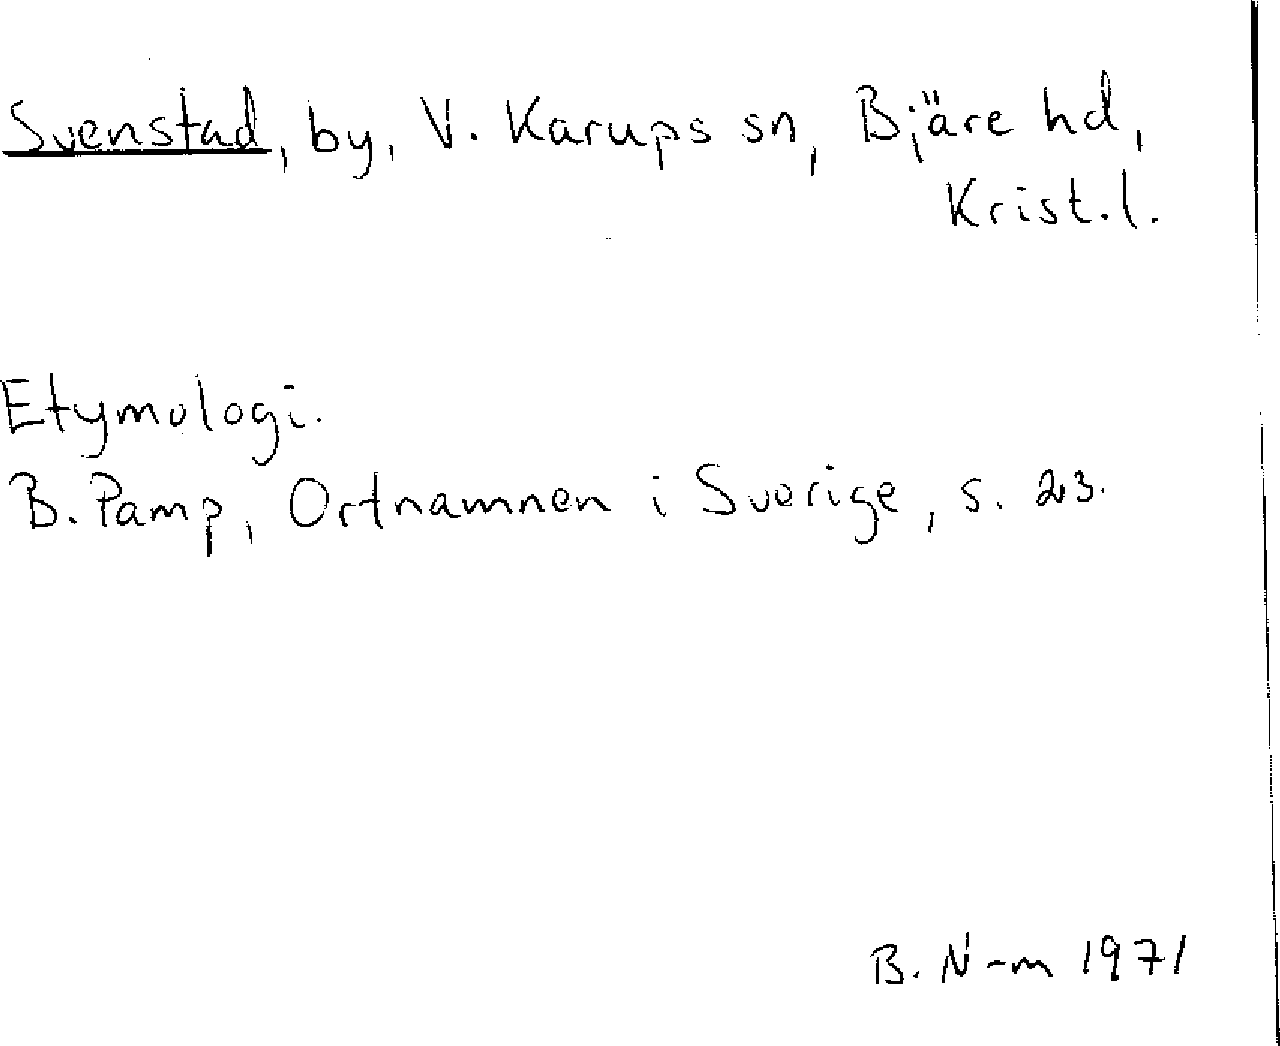 Svenstad, by, V. Karups sn, Bjäre hd,
Krist. l.
Etymologi.
B. Pamp, Ortnamnen i Sverige, s. 23.
B. N-m 1971